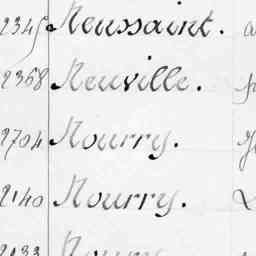 2345 Neussaint. a
2368 Neuville.
2704 Nourry.
2140 Nourry.